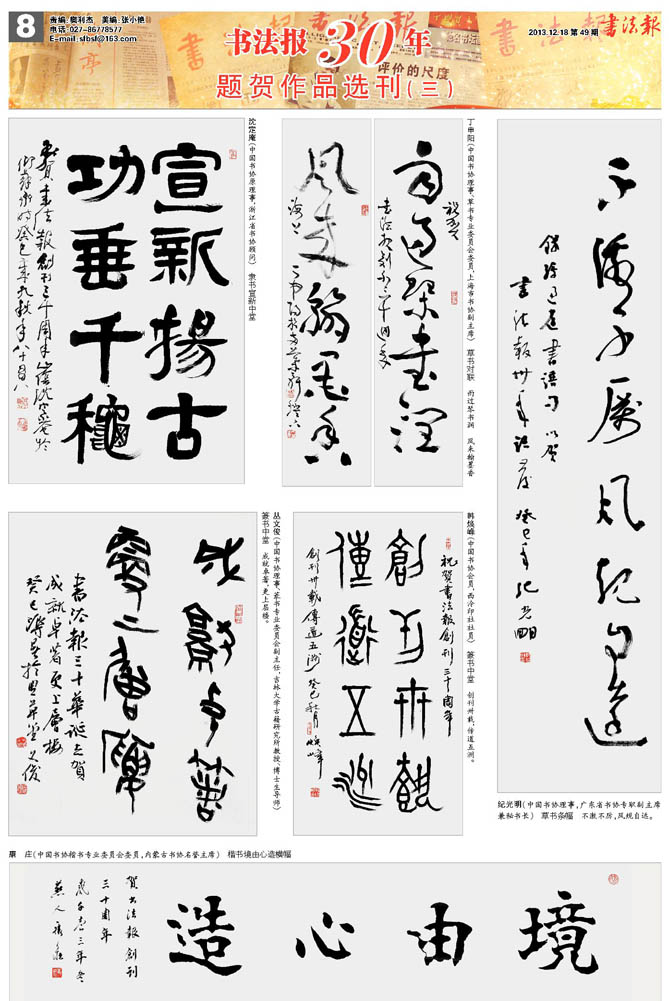 8
责编:樊利杰 美编:张小艳
电话:027-86778577
E-mail:sfbsf@163.com
书法报30年
题贺作品选刊(三)
评价的尺度
2013.12.18 第49期
书法報
沈定庵(中国书协原理事、浙江省书协顾问) 隶书宣新中堂
宣新揚古
功垂千龝
丁申阳(中国书协理事、草书专业委员会委员,上海市书协副主席) 草书对联 雨过琴书润 风来翰墨香
雨过琴書潤
风来翰墨香
不激不厲风規自遠
纪光明(中国书协理事,广东省书协专职副主席
兼秘书长) 草书条幅 不激不厉,风规自远。
丛文俊(中国书协理事、草书专业委员会副主任,吉林大学古籍研究所教授、博士生导师)
篆书中堂 成就卓著,更上层楼。
書法報三十華誕志賀
成就卓著更上層楼
韩焕峰(中国书协会员、西泠印社社员) 篆书中堂 创刊卅载,传道五洲。
祝賀書法報創刊三十周年
創刊卅載
傳道五洲
創刊卅載傳道五洲 癸巳秋月 焕峰
康 庄(中国书协楷书专业委员会委员,内蒙古书协名誉主席) 楷书境由心造横幅
境由心造
賀書法報創刊
三十周年